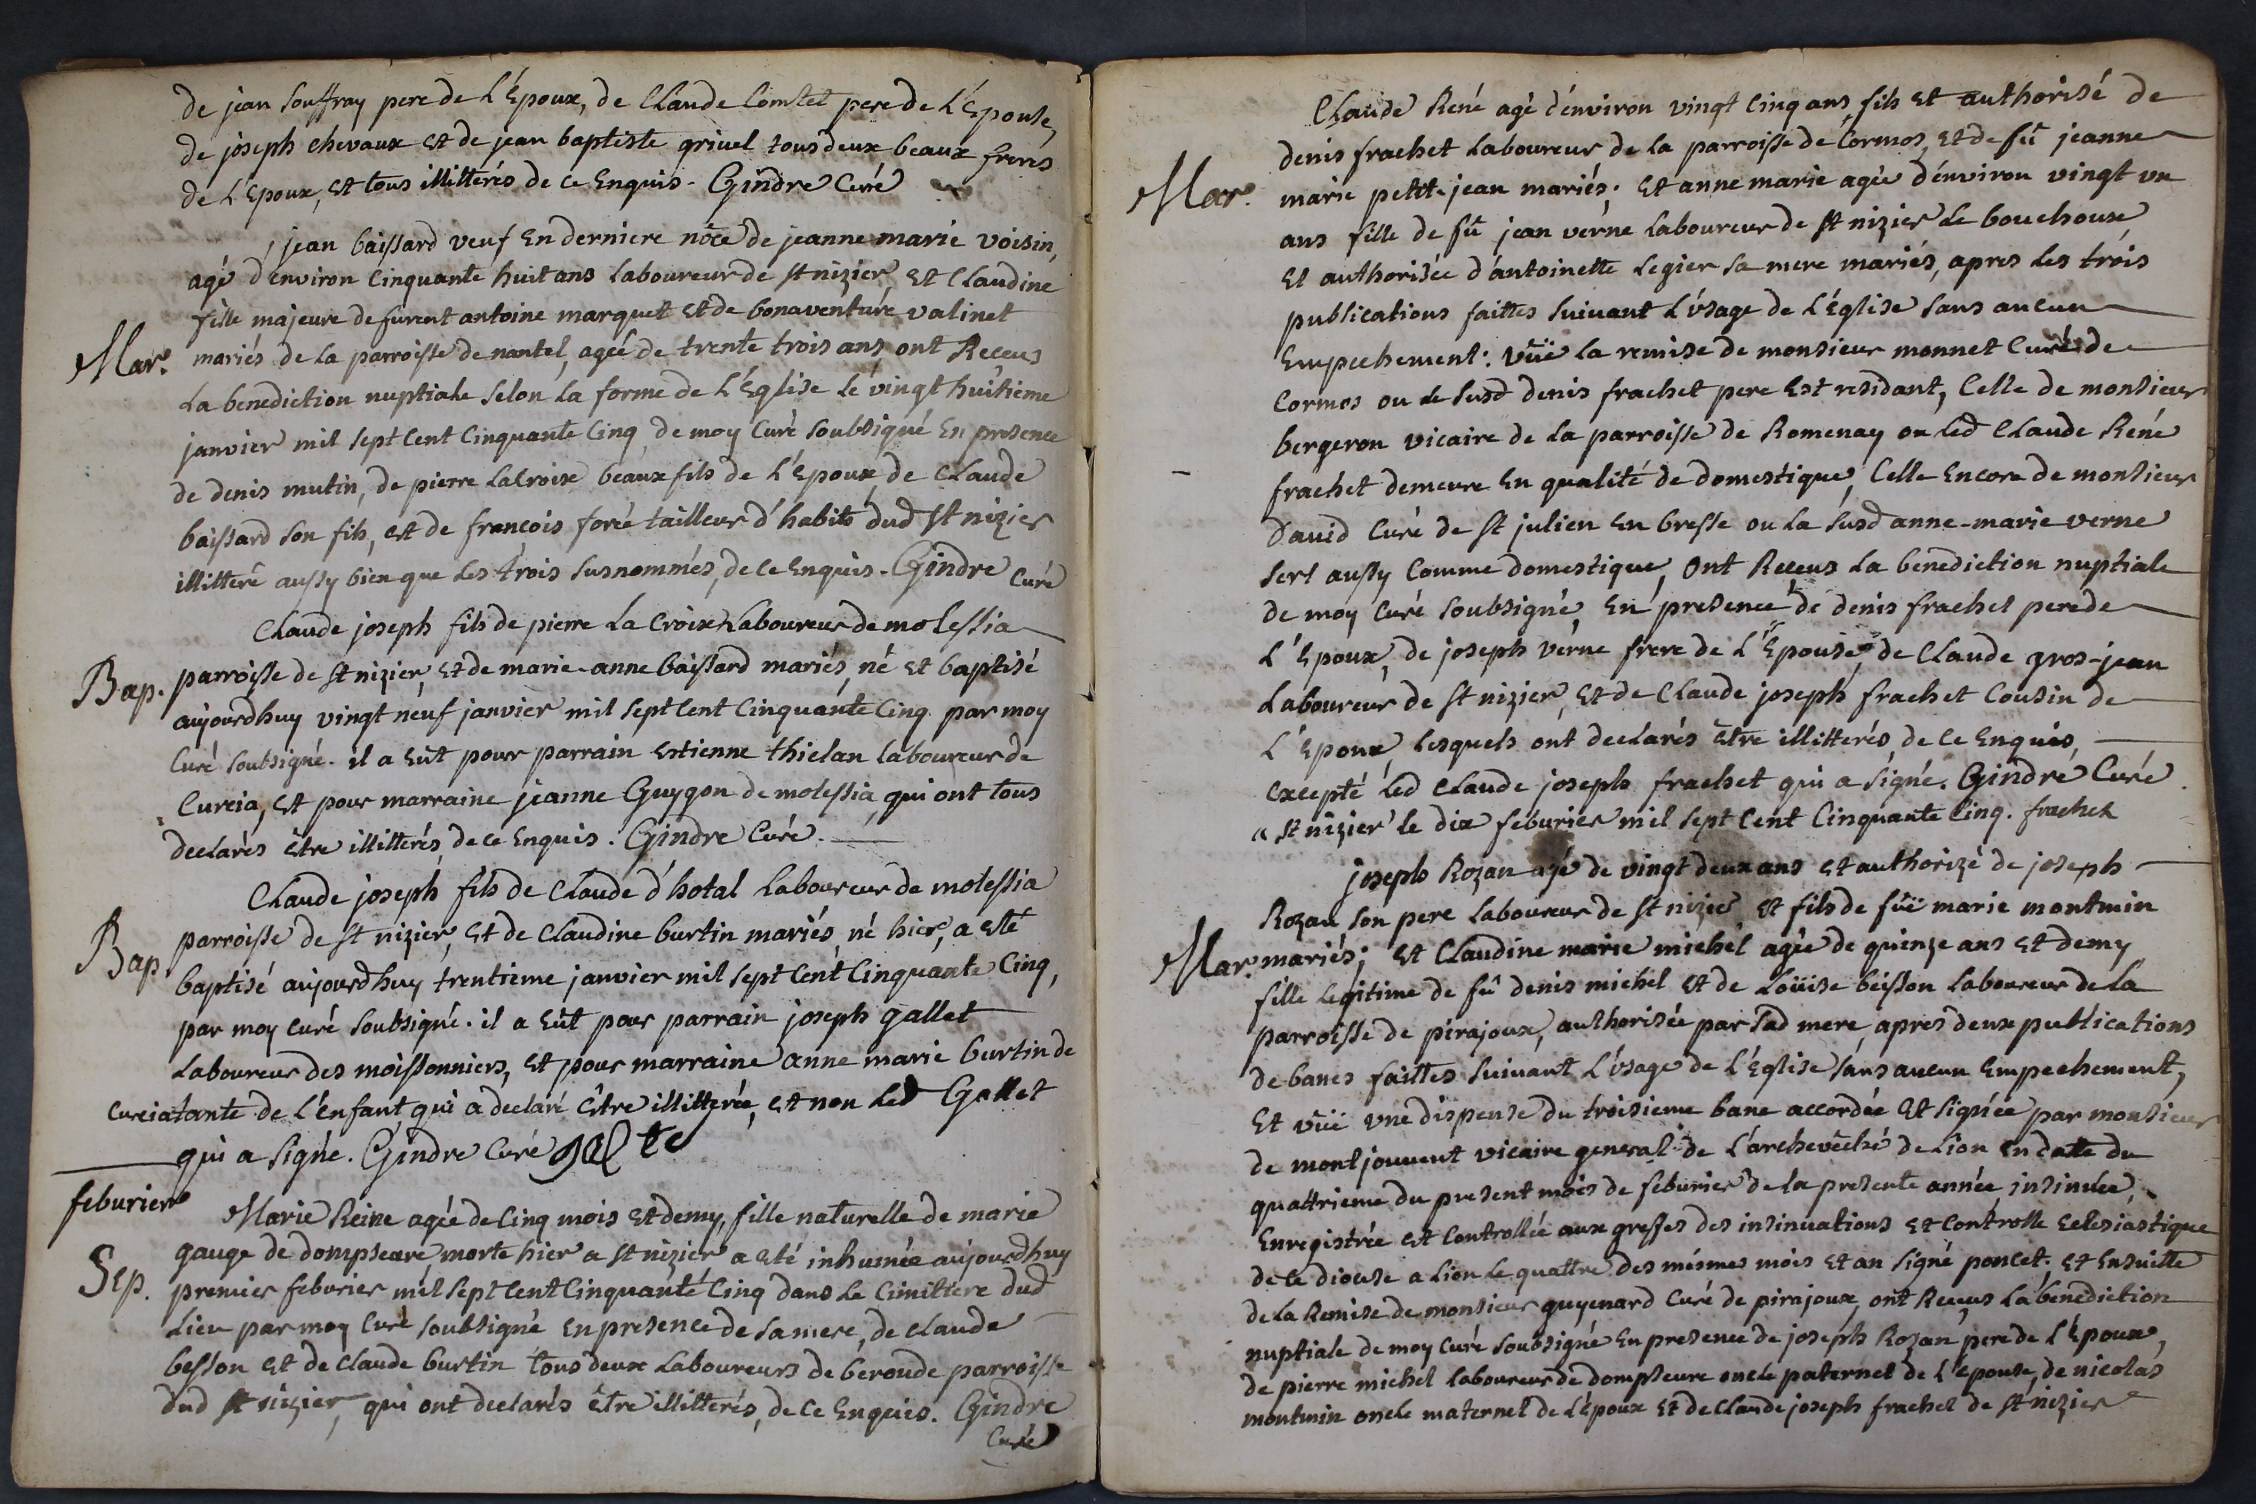 de jean souffray pere de l'Epoux, de Claude Comtet pere de l'Epouse,
de joseph chevaux et de jean baptiste grivel tous deux beaux freres
de l'Epoux, et tous illitterés de ce Enquis. Gindre Curé
jean baissard veuf En derniere nôce de jeanne marie voisin,
agé d'environ Cinquante huit ans laboureur de st nizier, et Claudine
fille majeure de furent antoine marquet et de bonaventure valinet
Mar. mariés de la parroisse de nantel, agée de trente trois ans ont Receus
La benediction nuptiale selon la forme de l'Eglise le vingt huitieme
janvier mil sept Cent Cinquante Cinq de moy Curé soubsigné En presence
de denis mutin, de pierre laCroix beaux fils de l'Epoux, de Claude
baissard son fils, et de francois foré tailleur d'habits dud st nizier
illitteré aussy bien que les trois susnommés, de ce Enquis. Gindre Curé
Claude joseph fils de pierre la Croix Laboureur de molessia
Bap. parroisse de st nizier, et de marie-anne baissard mariés, né et baptisé
aujourdhuy vingt neuf janvier mil sept Cent Cinquante Cinq par moy
Curé soubsigné. il a eût pour parrain Estienne thielan laboureur de
Curcia, et pour marraine jeanne Guygon de molessia, qui ont tous
declarés être illitterés de ce Enquis. Gindre Curé.
Claude joseph fils de Claude d'hotal laboureur de molessia
parroisse de st nizier, et de Claudine burtin mariés, né hier, a esté
Bap. baptisé aujourdhuy trentieme janvier mil sept Cent Cinquante Cinq,
par moy Curé soubsigné. il a eût pour parrain joseph gallet
laboureur des moissonniers, et pour marraine anne marie burtin de
Curcia tante de l'enfant qui a declaré être illitterée, et non led Gallet
qui a signé. Gindre Curé
feburier
Marie Reine agée de Cinq mois et demy, fille naturelle de marie
gauge de dompseure, morte hier a st nizier a eté inhumée aujourdhuy
Sep. premier feburier mil sept Cent Cinquante Cinq dans le Cimittere dud
Lieu par moy Curé soubsigné En presence de sa mere, de Claude
besson et de Claude burtin tous deux laboureurs de beroude parroisse
dud st nizier, qui ont declarés être illitterés, de ce Enquis. Gindre
Curé
Claude René agé d'énviron vingt Cinq ans, fils et authorisé de
denis frachet laboureur de la parroisse de Cormos, et de fû jeanne
Mar. marie petit-jean mariés; et anne marie agée d'énviron vingt un
ans fille de fû jean verne laboureur de st nizier le bouchoux
et authorisée d'antoinette legier sa mere mariés, apres les trois
publications faittes suivant l'ûsage de l'Eglise sans aucun
Empechement: vûë la remise de monsieur monnet Curé de
Cormos ou le susd denis frachet pere Est residant, Celle de monsieur
bergeron vicaire de la parroisse de Romenay ou led Claude René
frachet demeure En qualité de domestique, Celle Encore de monsieur
David Curé de st julien en bresse ou la susd anne-marie verne
sert aussy Comme domestique, Ont Receus la benediction nuptiale
de moy Curé soubsigné, En presence de denis frachet pere de
l'Epoux, de joseph verne frere de l'Epouse, de Claude gros-jean
laboureur de st nizier, et de Claude joseph frachet Cousin de
l'Epoux, lesquels ont declarés être illitterés, de ce Enquis,
excepté led Claude joseph frachet qui a signé. Gindre Curé
a st nizier le dix feburier mil sept Cent Cinquante Cinq. frachet
joseph Rozan agé de vingt deux ans et authorizé de joseph
Rozan son pere laboureur de st nizier et fils de fûë marie montmin
Mar. mariés; et Claudine marie michel agée de quinze ans et demy
fille legitime de fû denis michel et de Loüise beisson laboureur de la
parroisse de pirajoux, authorisée par sad mere, apres deux publications
de bancs faittes suivant l'ûsage de l'Eglise sans aucun Empechement,
Et vûë une dispense du troisieme banc accordée et signée par monsieur
de montjouvent vicaire general de l'archevêché de Lion en date du
quattrieme du present mois de feburier de la presente année, insinuée,
Enregistrée et Controllée aux greffes des insinuations et Controlle Eclesiastique
de ce diocese a Lion le quattre des mémes mois et an signé poncet. et Ensuitte
de la Remise de monsieur guyenard Curé de pirajoux, ont Receus la bénediction
nuptiale de moy Curé soubsigné En presence de joseph Rozan pere de l'Epoux,
de pierre michel laboureur de dompseure oncle paternel de l'epouse, de nicolas
montmin oncle maternel de l'époux et de Claude joseph frachet de st nizier